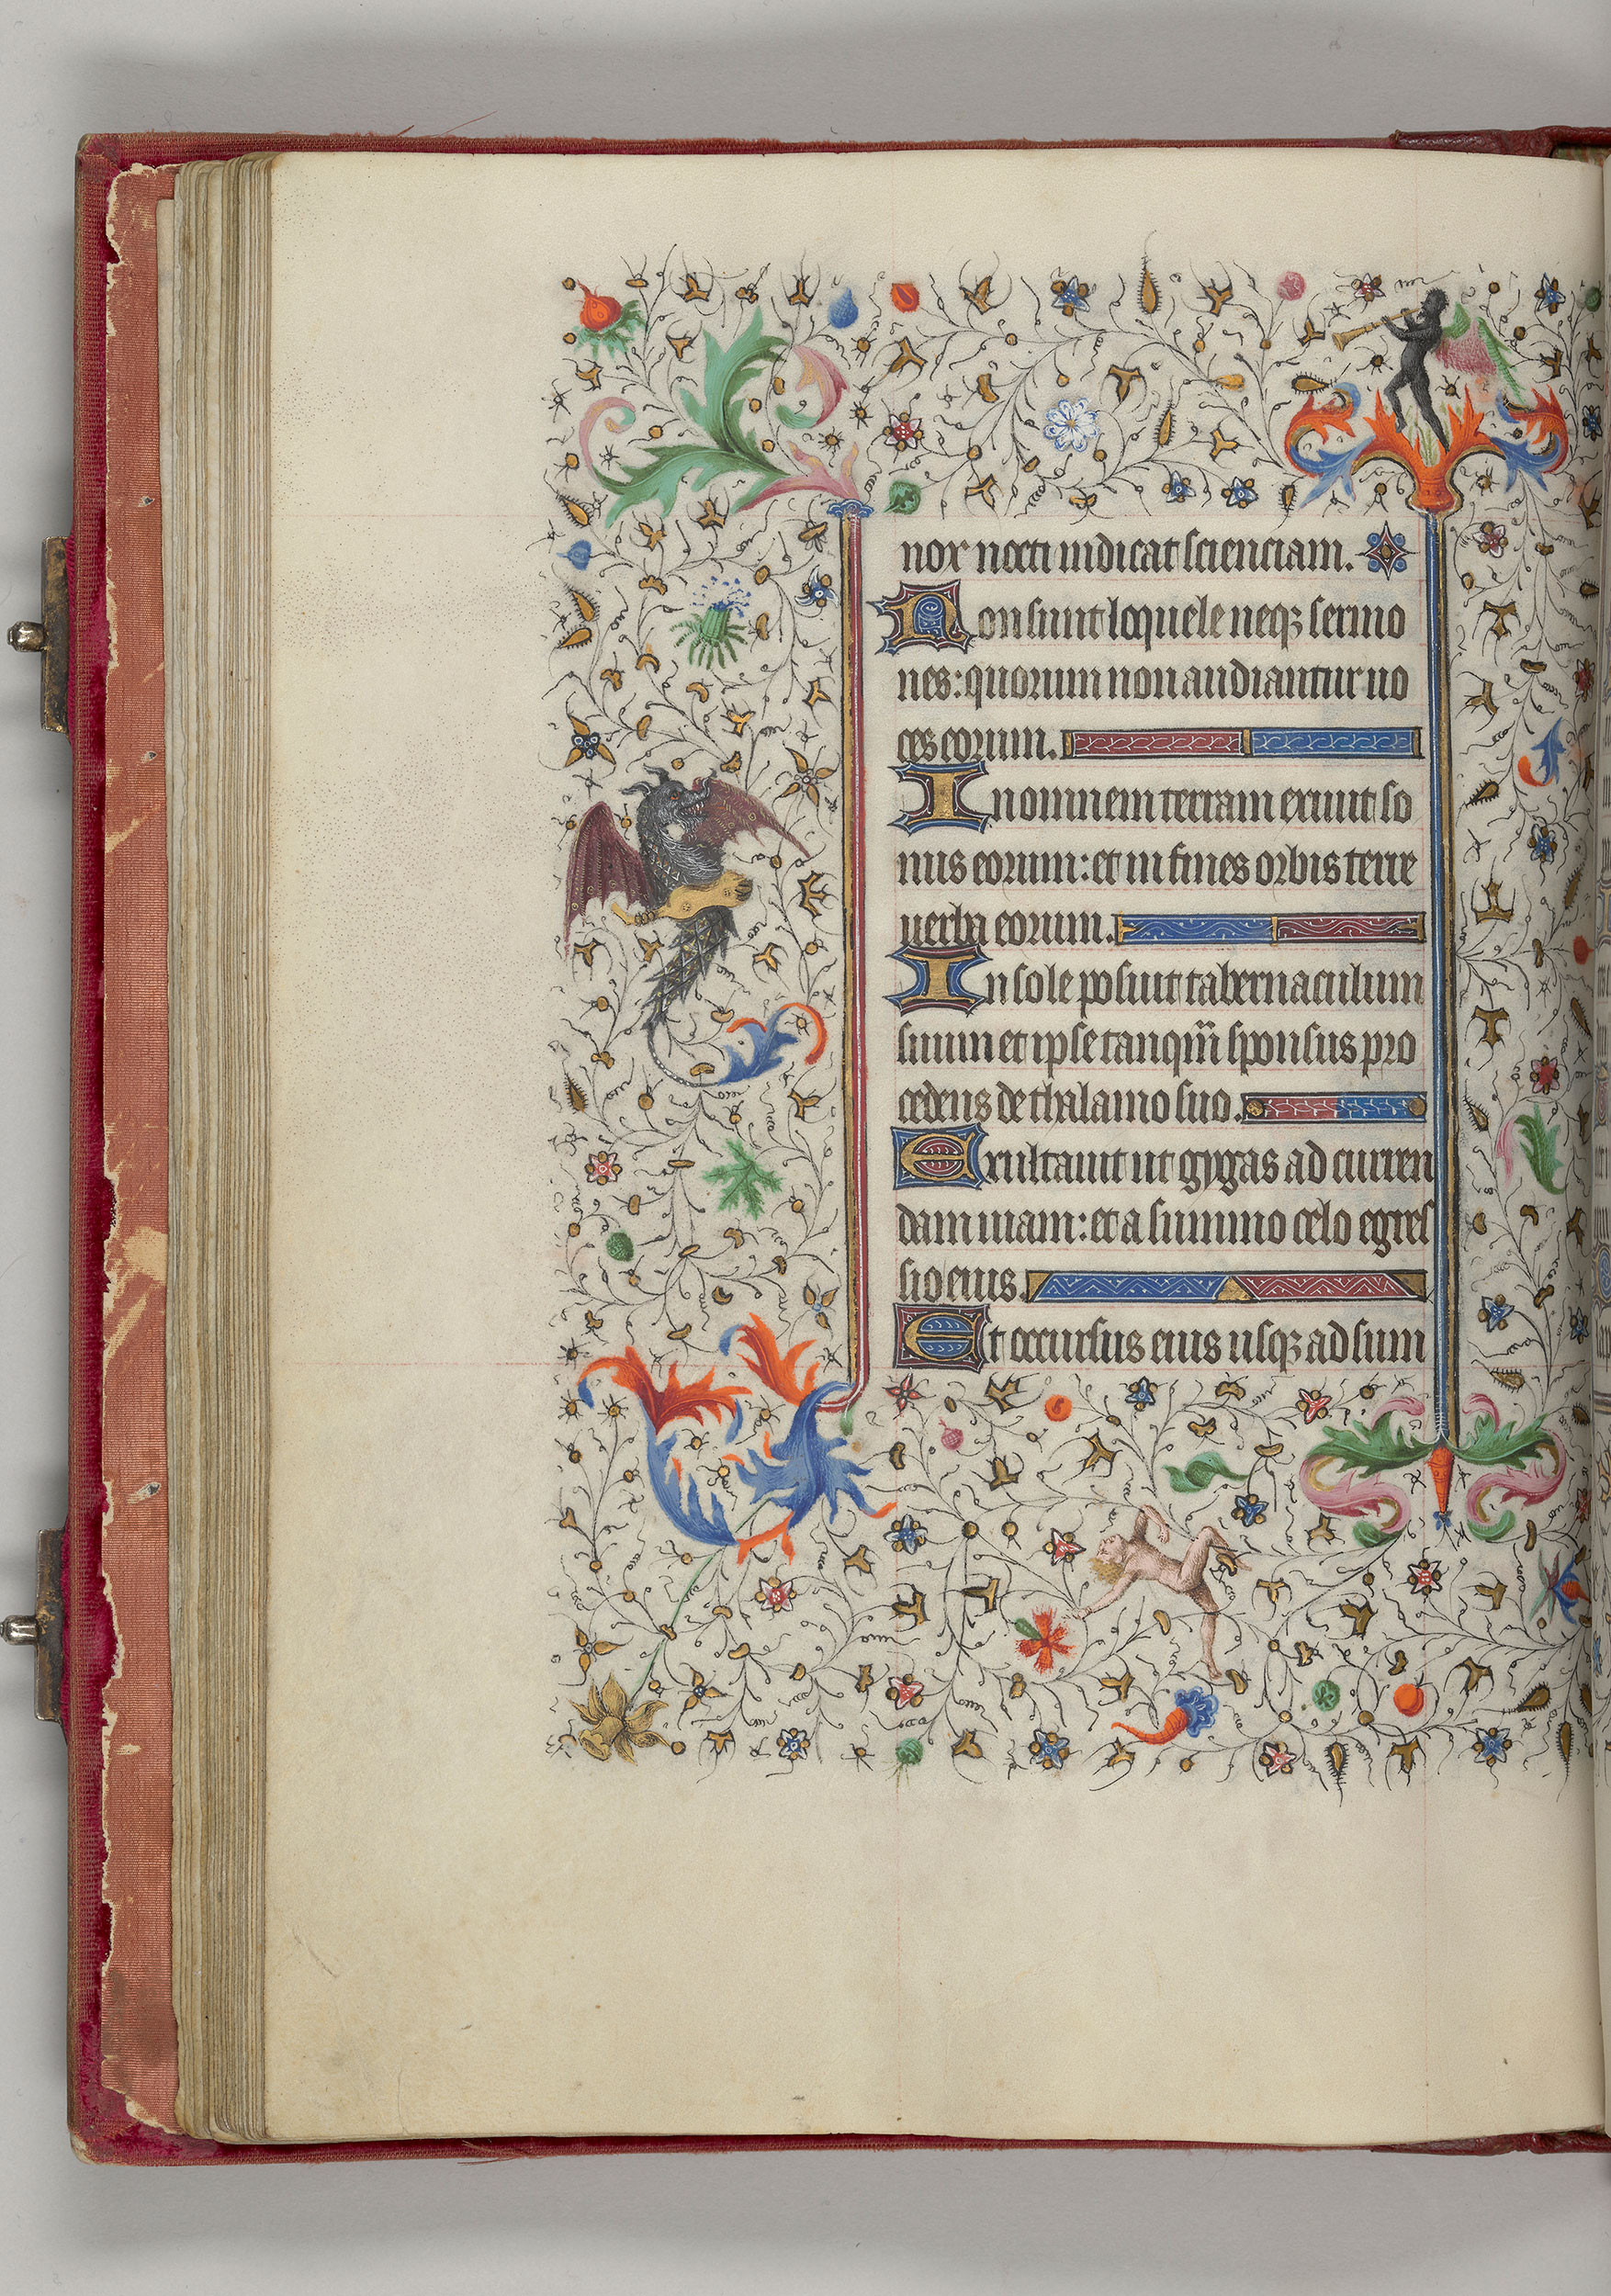 nox nocti indicat scienciam.
Non sunt loquele neqꝫ sermo
nes: quorum non audiantur uo
ces eorum.
In omnem terram exiuit so
nus eorum: et in fines orbis terre
uerba eorum.
In sole posuit tabernaculum
suum et ipse tanqm̄ sponsus pro
cedens de thalamo suo.
Exultauit ut gygas ad curren
dam uiam: et a summo celo egres
sio eius.
Et occursus eius usqꝫ ad sum